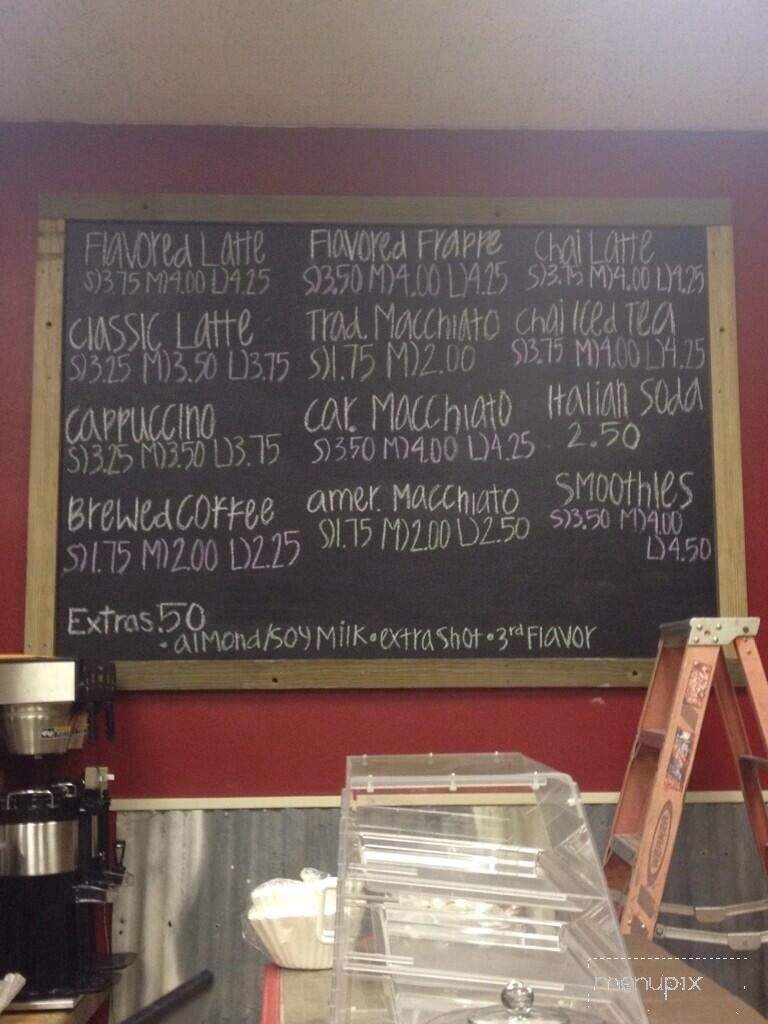 Flavored Latte
S)3.75 M)4.00 L)4.25
Classic Latte
S)3.25 M)3.50 L)3.75
Cappuccino
S)3.25 M)3.50 L)3.75
Brewed Coffee
S)1.75 M)2.00 L)2.25
Flavored Frappe
S)3.50 M)4.00 L)4.25
Trad. Macchiato
S)1.75 M)2.00
Car. Macchiato
S)3.50 M)4.00 L)4.25
amer. Macchiato
S)1.75 M)2.00 L)2.50
Chai Latte
S)3.75 M)4.00 L)4.25
Chai Iced Tea
S)3.75 M)4.00 L)4.25
Italian Soda
2.50
Smoothies
S)3.50 M)4.00
L)4.50
Extras .50
• almond/soy Milk • extra shot • 3rd Flavor
WERNER
menupix